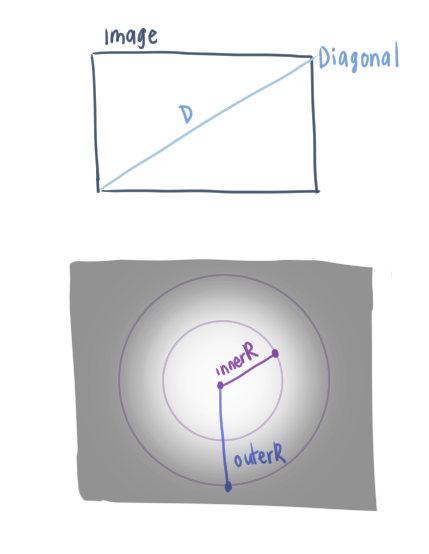 Image
Diagonal
D
innerR
outerR